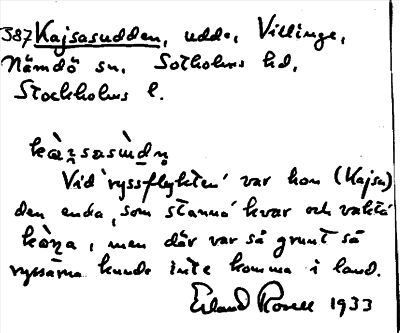 387 Kajsasudden, udde, Villinge,
Nämdö sn. Sotholms hd,
Stockholms l.
kàṉsasùdṇ
Vid 'ryssflykten' var hon (Kajsa)
den enda, som stanna' kvar och vakta'
, men där var så grunt så
ryssarna kunde inte komma i land.
Erland Rosell 1933